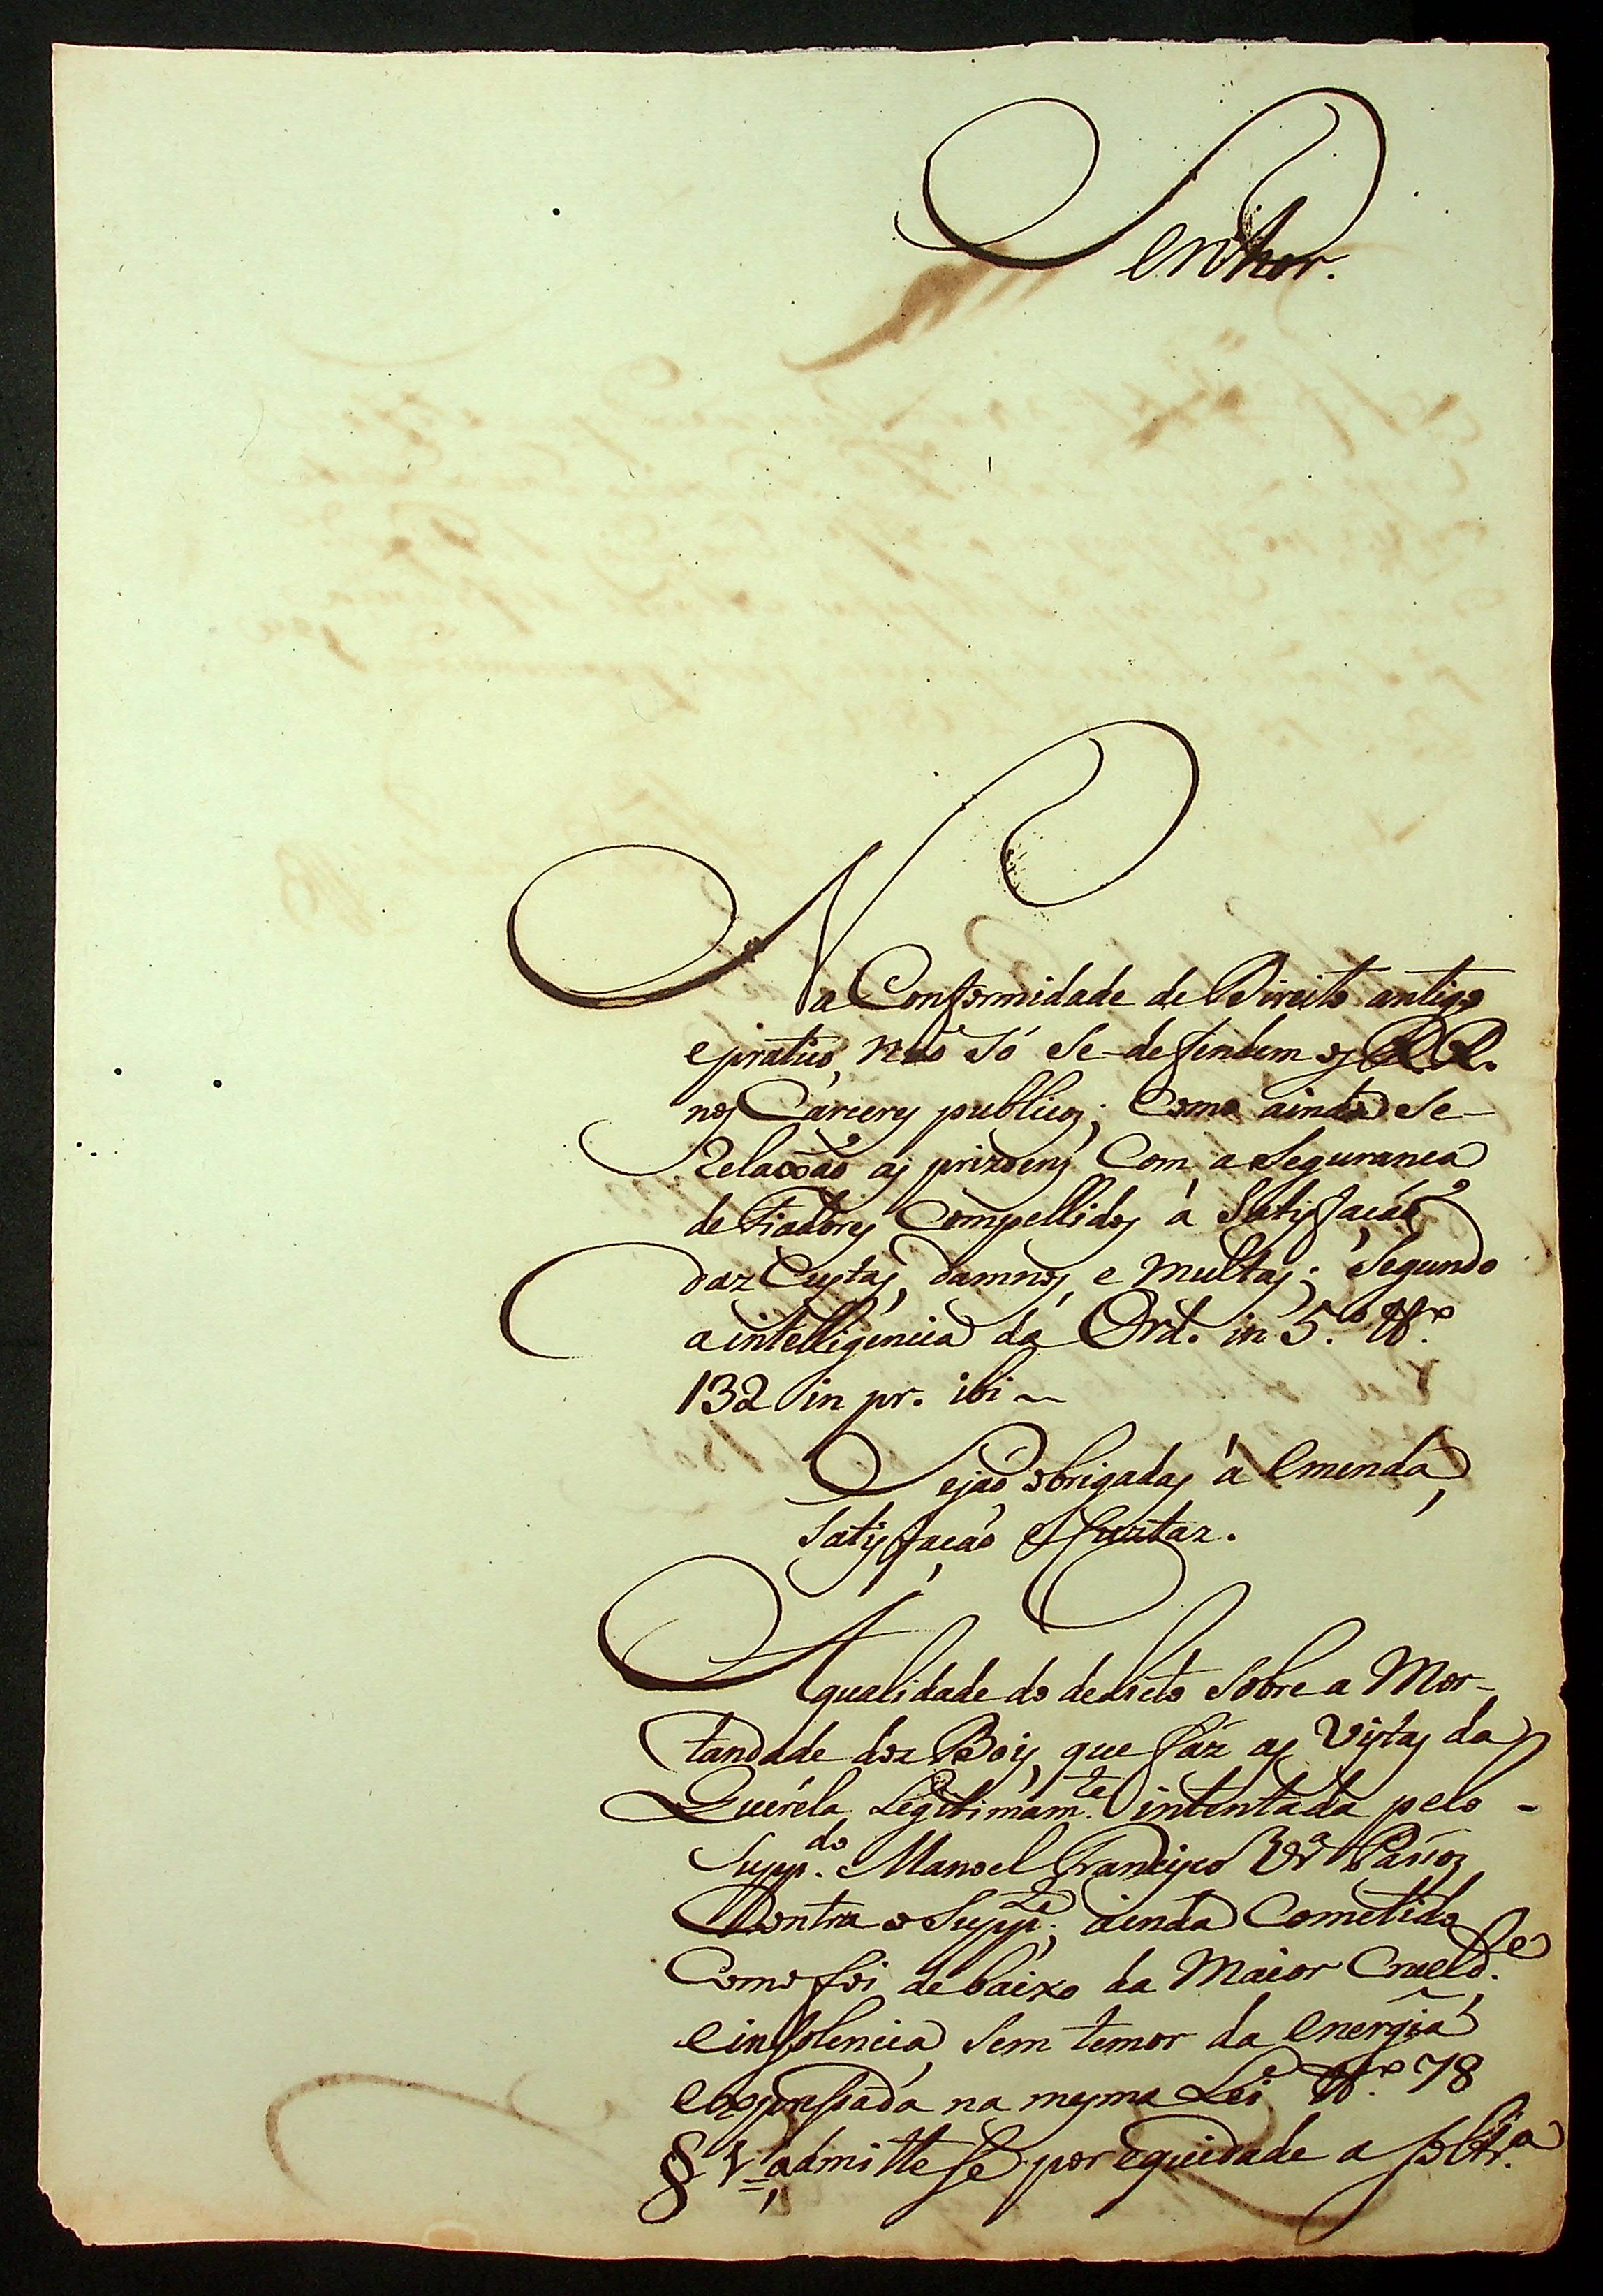 Senhor.
Na Conformidade de Direito antigo
e pratico, não só se-defendem os RR.
nos Carceres publicos; Como ainda se-
Relaxão as prizoens Com a Seguranca
de Fiadores Compellidos á Satisfação
daz Custas, damnos, e multas; Segundo
a intelligencia da Ord. in 5.º ttº
132 in pr. ibi ~
Sejão obrigadas á emenda,
Satisfação e Custaz.
A qualidade do delicto Sobre a Mor-
tandade doz Bois, que fáz as Vistas da
Queréla Legitimam.te intentada pelo -
Supp.do Manoel Francisco Vr.ª Passoz
Contra o Supp.te; ainda Cometido
Como foi debaixo da Maior Crueld.e
e insolencia, Sem temor da energia
expressada na mesma Lei tt.º 78
§ 1º, admitte se por equidade a Soltr.ª